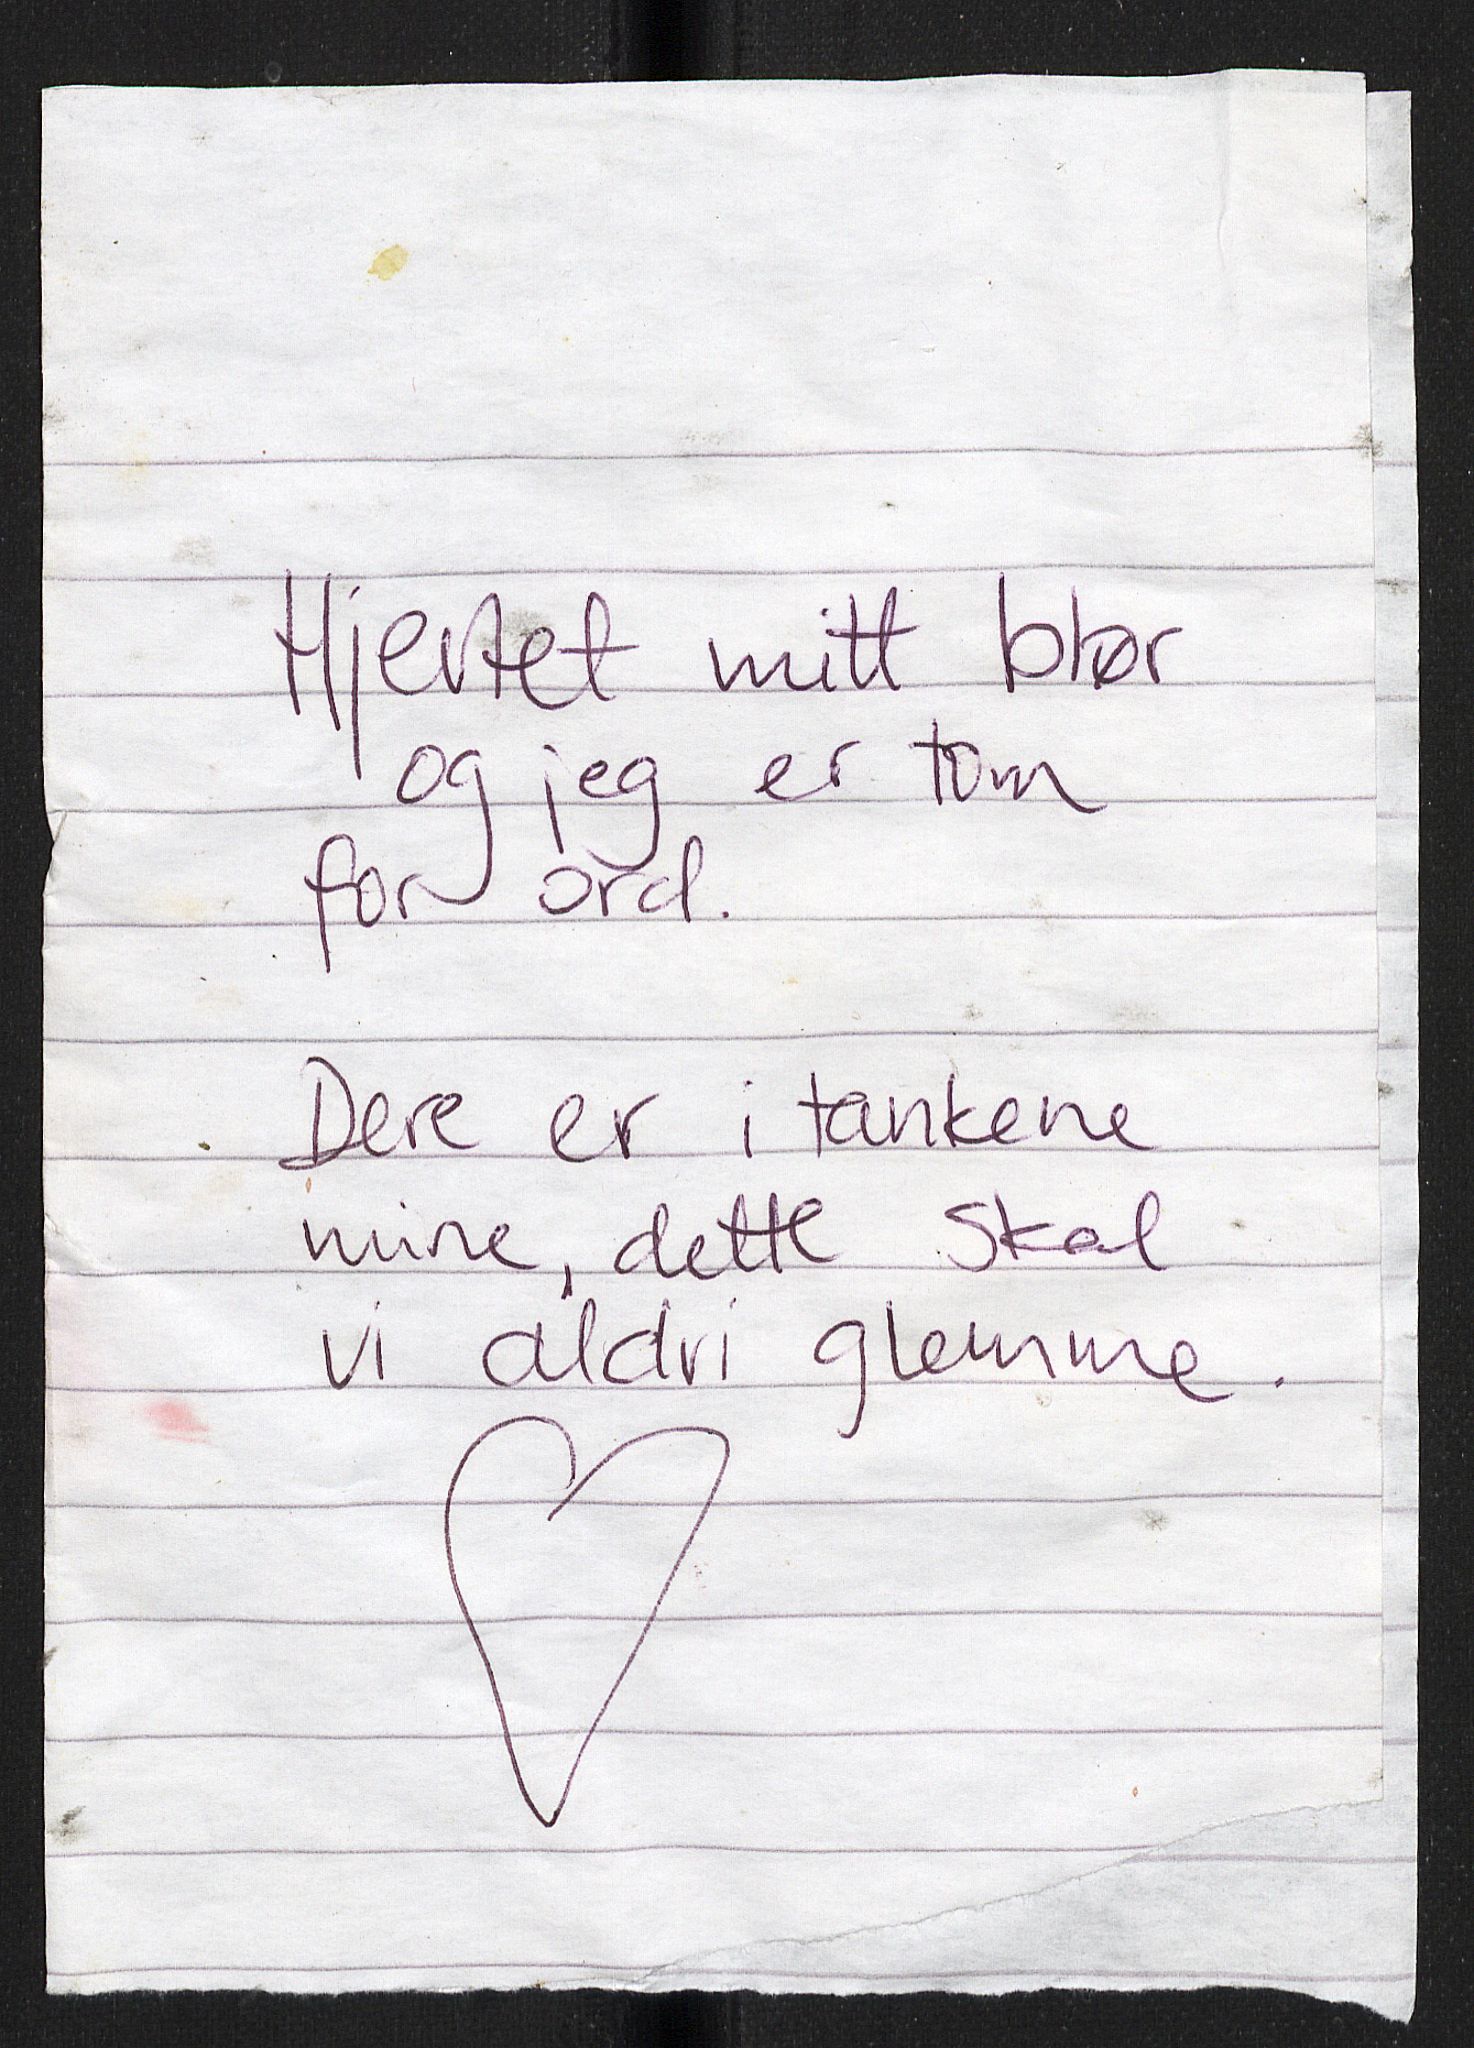 Hjertet mitt blør
og jeg er tom
for ord.
Dere er i tankene
mine, dette skal
vi aldri glemme.